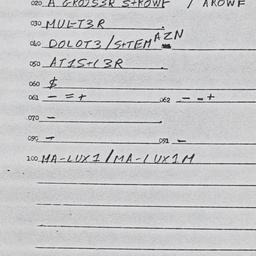 020 A GROSSER S+ROWE / A ROWE
030 MUL-T3R
AZN
040 DOLOT3/S+TEM
050 AT1S+(3R
060 $
061 - = + 062 - - +
070 -
090 - 091 -
100 MA-LUX1/MA-LUX1M